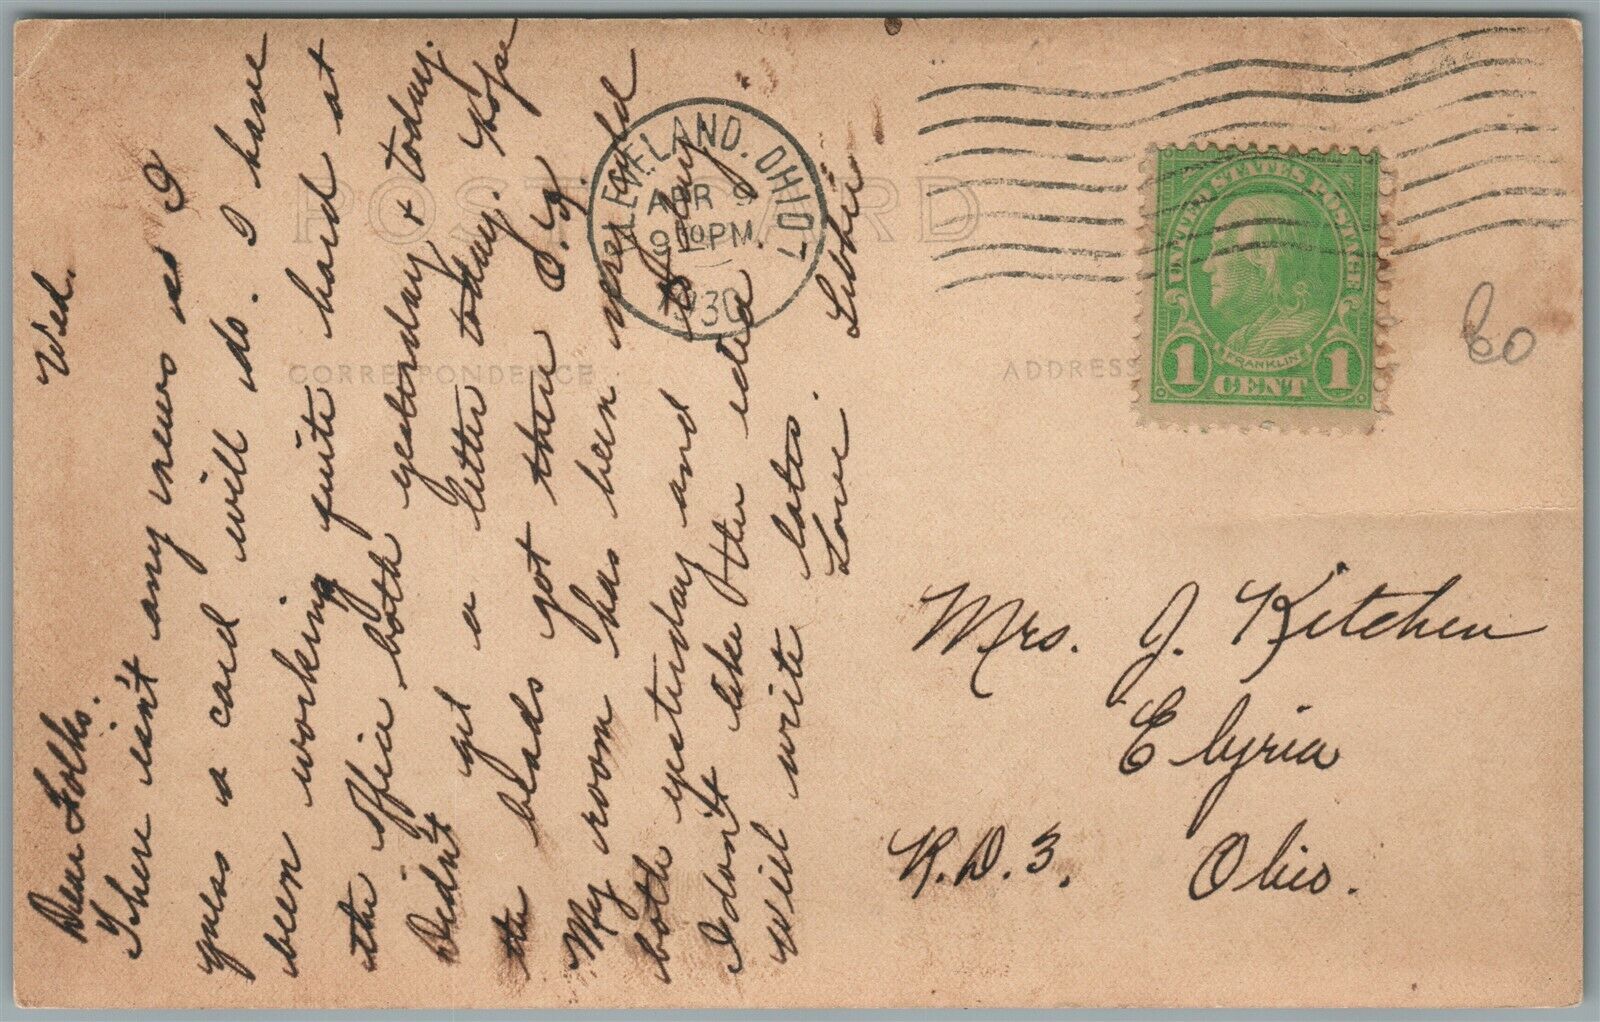 Wed.
Dear Folks.
There isn't any news so I
guess a card will do. I have
been working quite hard at
the office both yesterday & today.
Didn't get a letter today. Hope
the beads got there O.K.
My room has been very cold
both yesterday and today
I don't like the idea.
Will write later.
Love Libbie
POST CARD
CORRESPONDENCE
ADDRESS
CLEVELAND, OHIO
APR 9
9 PM
1930
UNITED STATES POSTAGE
FRANKLIN
1 CENT 1
60
Mrs. J. Kitchen
Elyria
R.D.3. Ohio.